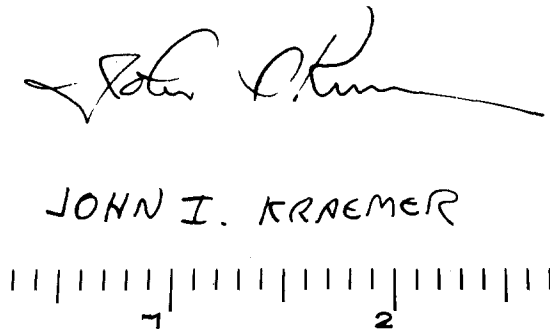 John I. Kraemer
JOHN I. KRAEMER
1 2